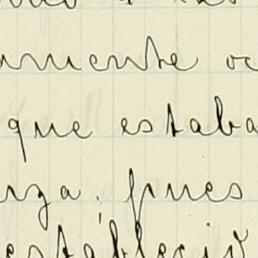 amente oc
que estaba
nza. pues
establecid